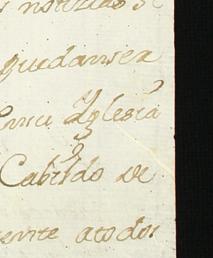 noticias se
quedan en
Iglesia
y
Cabildo de
ente atodos